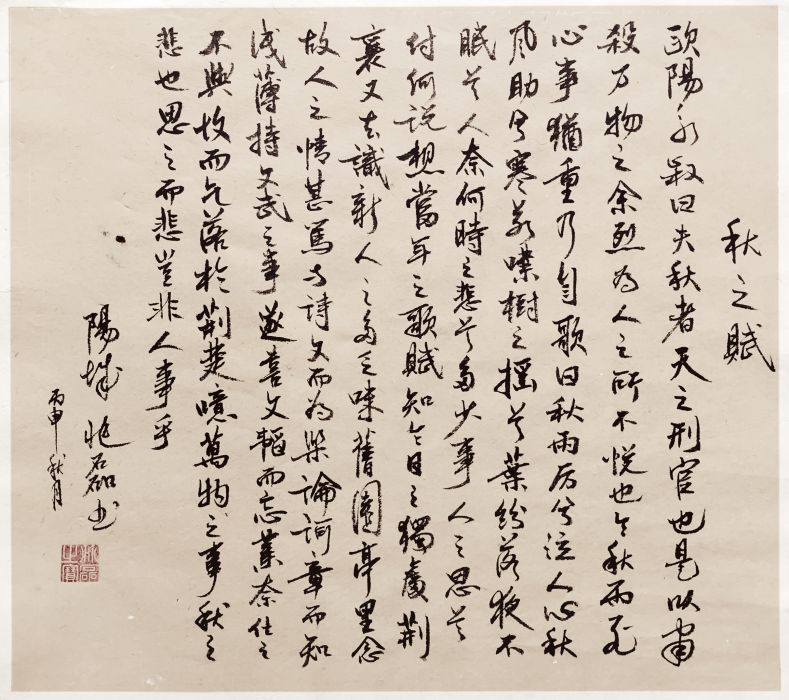 秋之賦
歐陽永叔曰夫秋者天之刑官也是以肅
殺万物之余烈為人之所不悦也今秋雨至
心事猶重乃自歌曰秋雨厉兮泣人心秋
风助兮寒蒹噤樹之摇兮葉紛落狼不
賦兮人奈何時之悲兮多少事人之思兮
付何说想當年之歌賦知今日之獨處荆
襄又去識新人之多乏味舊園亭里念
故人之情甚篤与詩文而為樂論詞章而知
浅薄持文武之事遂喜文韜而忘業奈仕之
不與故而乞落於荆楚噫萬物之事秋之
悲也思之而悲豈非人事乎
陽城 石磊书
丙申秋月